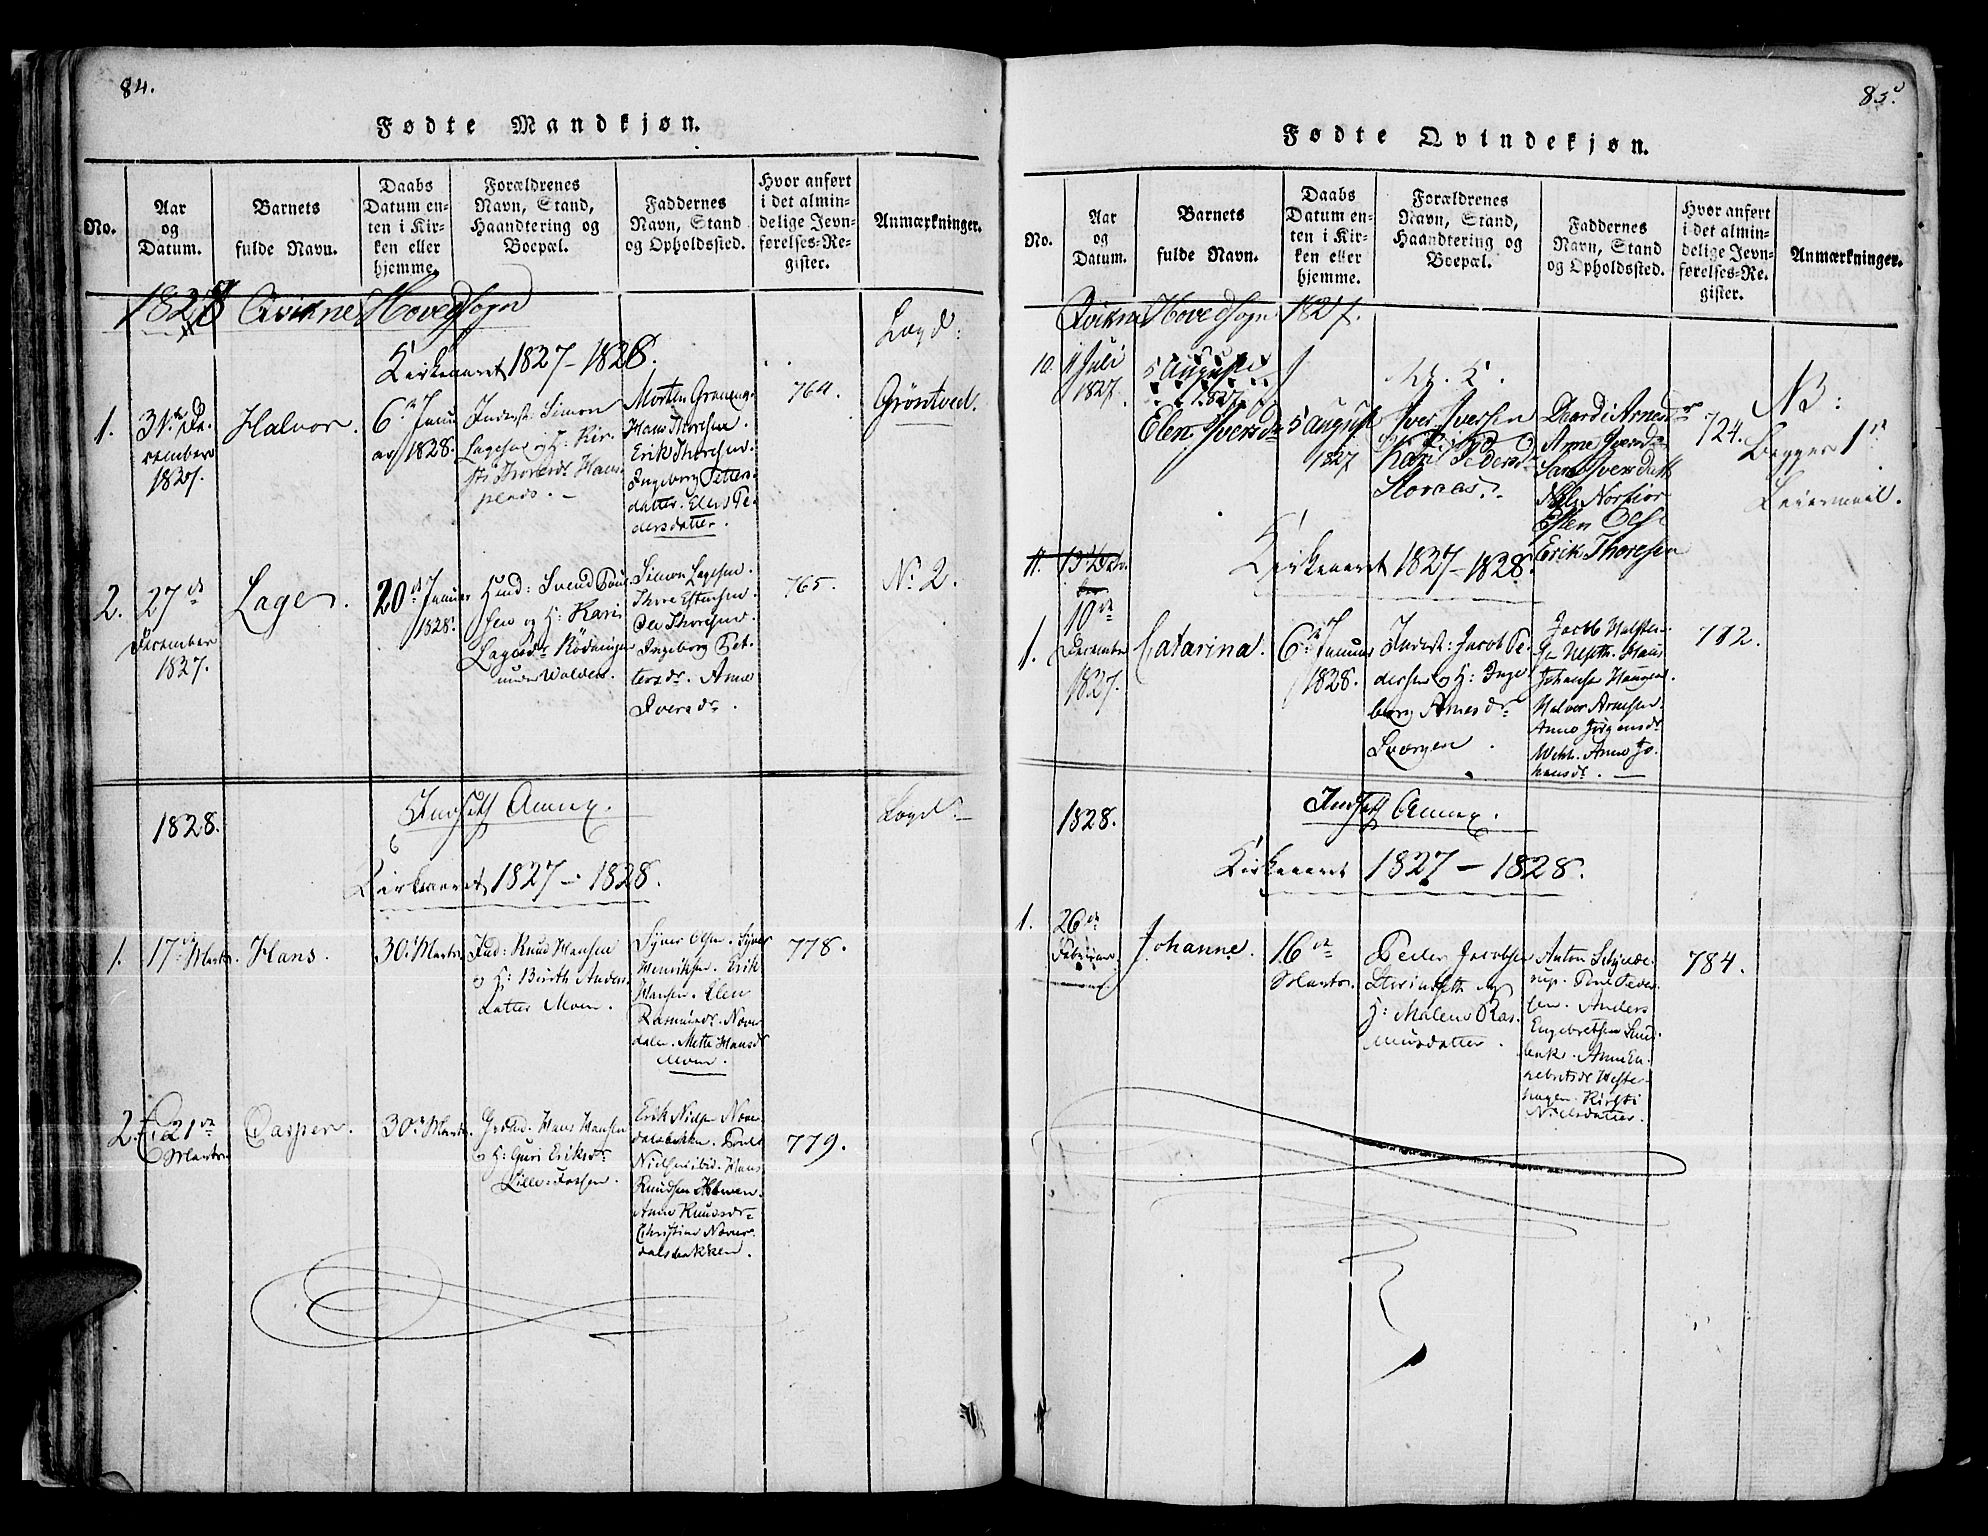 84.
Fødte Mandkjøn.
No.
Aar
og
Datum.
Barnets
fulde Navn.
Daabs
Datum en-
ten i Kir-
ken eller
hjemme.
Forældrenes
Navn, Stand,
Haandtering og
Boepæl.
Faddernes
Navn, Stand
og Opholdssted.
Hvor anført
i det almin-
delige Jevn-
førelses-Re-
gister.
Anmærkninger.
Qvikne Hovedsogn
Kirkeaaret 1827 - 1828.
1.
31te De-
cember
1827.
Halvor.
6te Janu
ar 1828.
Simon
Lagesen og H: Kir-
sti Thoresdr Hans
plads. -
Morten
Hans Thoresen.
Erik Thoresen.
Ingeborg Petters
datter. Elen Pe
dersdatter.
764.
Grøntved.
2.
27de
December
1827.
Lage.
20de Januar
1828.
Svend Poul
sen og H: Kari
Lagesdr Rödninge
under Wolden.
Simon Lagesen.
Thore Estensen.
Ole Thoresen.
Ingeborg Pet-
tersdr. Anne
Iversdr.
765.
No 2.
1828.
Indseth Annex.
Kirkeaaret 1827 - 1828.
1.
17de Marts.
Hans.
30te Marts.
Ind: Knud Hansen
og H: Birith Anders
datter Moen.
Syver Olsen. Syver
Henriksen. Erik
Hansen. Elen
Rasmusdr. Næver
dalen. Mette Hansdr
Moen.
778.
2.
21de
Marts
Casper.
30te Marts.
Hans Hansen
og H: Guri Eriksdr
Erik Niels. Næver
dalsbakken.
Hans
Knudsen
Anne Knudsdr
Christine Næver
dalsbakken.
779.
85.
Fødte Qvindekjøn.
No.
Aar
og
Datum.
Barnets
fulde Navn.
Daabs
Datum en-
ten i Kir-
ken eller
hjemme.
Forældrenes
Navn, Stand,
Haandtering og
Boepæl.
Faddernes
Navn, Stand
og Opholdssted.
Hvor anført
i det almin-
delige Jevn-
førelses-Re-
gister.
Anmærkninger.
Qvikne Hovedsogn 1827.
10.
11 Juli
1827.
5 August
1827
Elen Iversdr
5 August
1827
Iver Iversen
Kari Pedersdr
Storaas.
Arne Iversdr
Iversdatt
Nils
Esten Ols.
Erik Thoresen
724.
NB:
Begges 1ste
Leiermaal.
Kirkeaaret 1827 - 1828.
11.
1.
10de
December
1827.
Catarina.
6te Januar
1828.
Jacob Pe-
dersen og H: Inge
borg Arnesdr
Jacob Halsten-
Hans
Johansen Haugen.
Halvor Arnesen.
Anne Jörgensdr
Anne Jo-
hansdr.
782.
1828.
Indseth Annex.
Kirkeaaret 1827 - 1828.
1.
26de
Februar
Johanne.
16de
Marts.
Peder Jacobsen
og
H: Malene Ras-
musdatter.
Anton Schjelde-
rup. Poul Peder
sen. Anders
Engebretsen
Anne En-
gebretsdr Wester-
hagen. Kirsti
Nielsdatter.
784.